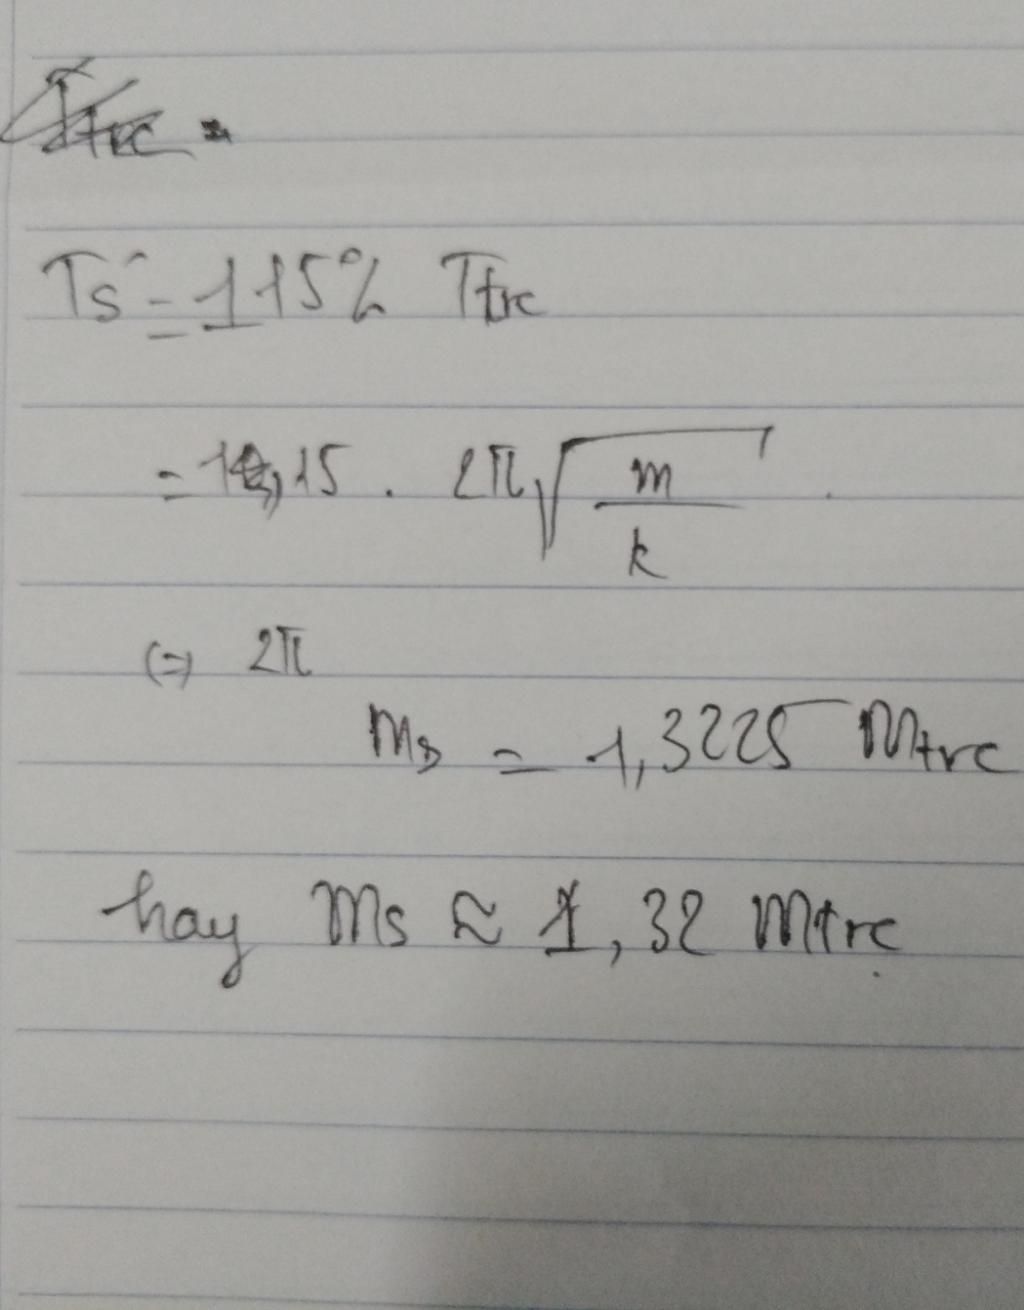 Ts = 115% Ttrc
= 1,15 . 2π√(m/k)
(=) 2π
ms = 1,3225 mtrc
hay ms ≈ 1,32 mtrc